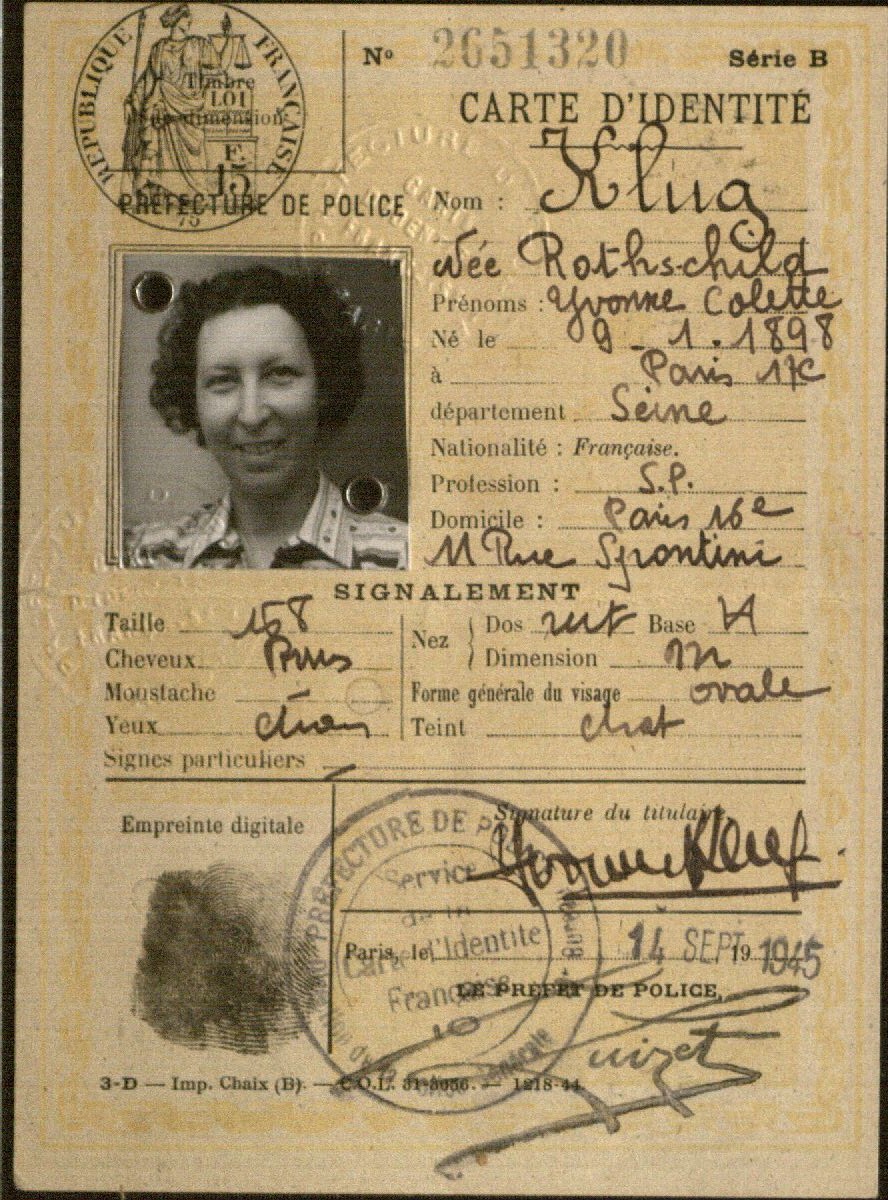 RÉPUBLIQUE FRANÇAISE
Timbre
LOI
dimension
F.
15
75
Nº 2651320 Série B
CARTE D'IDENTITÉ
PRÉFECTURE DE POLICE
Nom : Klug
née Rothschild
Prénoms : Yvonne Colette
Né le 9 - 1 . 1898
à Paris 17e
département Seine
Nationalité : Française.
Profession : S.P.
Domicile : Paris 16e
11 Rue Spontini
SIGNALEMENT
Taille 158
Cheveux
Moustache –
Yeux
Signes particuliers –
Nez Dos Base
Dimension m
Forme générale du visage ovale
Teint
Empreinte digitale
Signature du titulaire,
Yvonne Klug
PRÉFECTURE DE
Service
de la
Carte d'Identité
Française
10
Générale
Paris, le 14 SEPT 19 1945
LE PRÉFET DE POLICE,
3-D — Imp. Chaix (B). — C.O.L. 31-3056. — 1218-44.